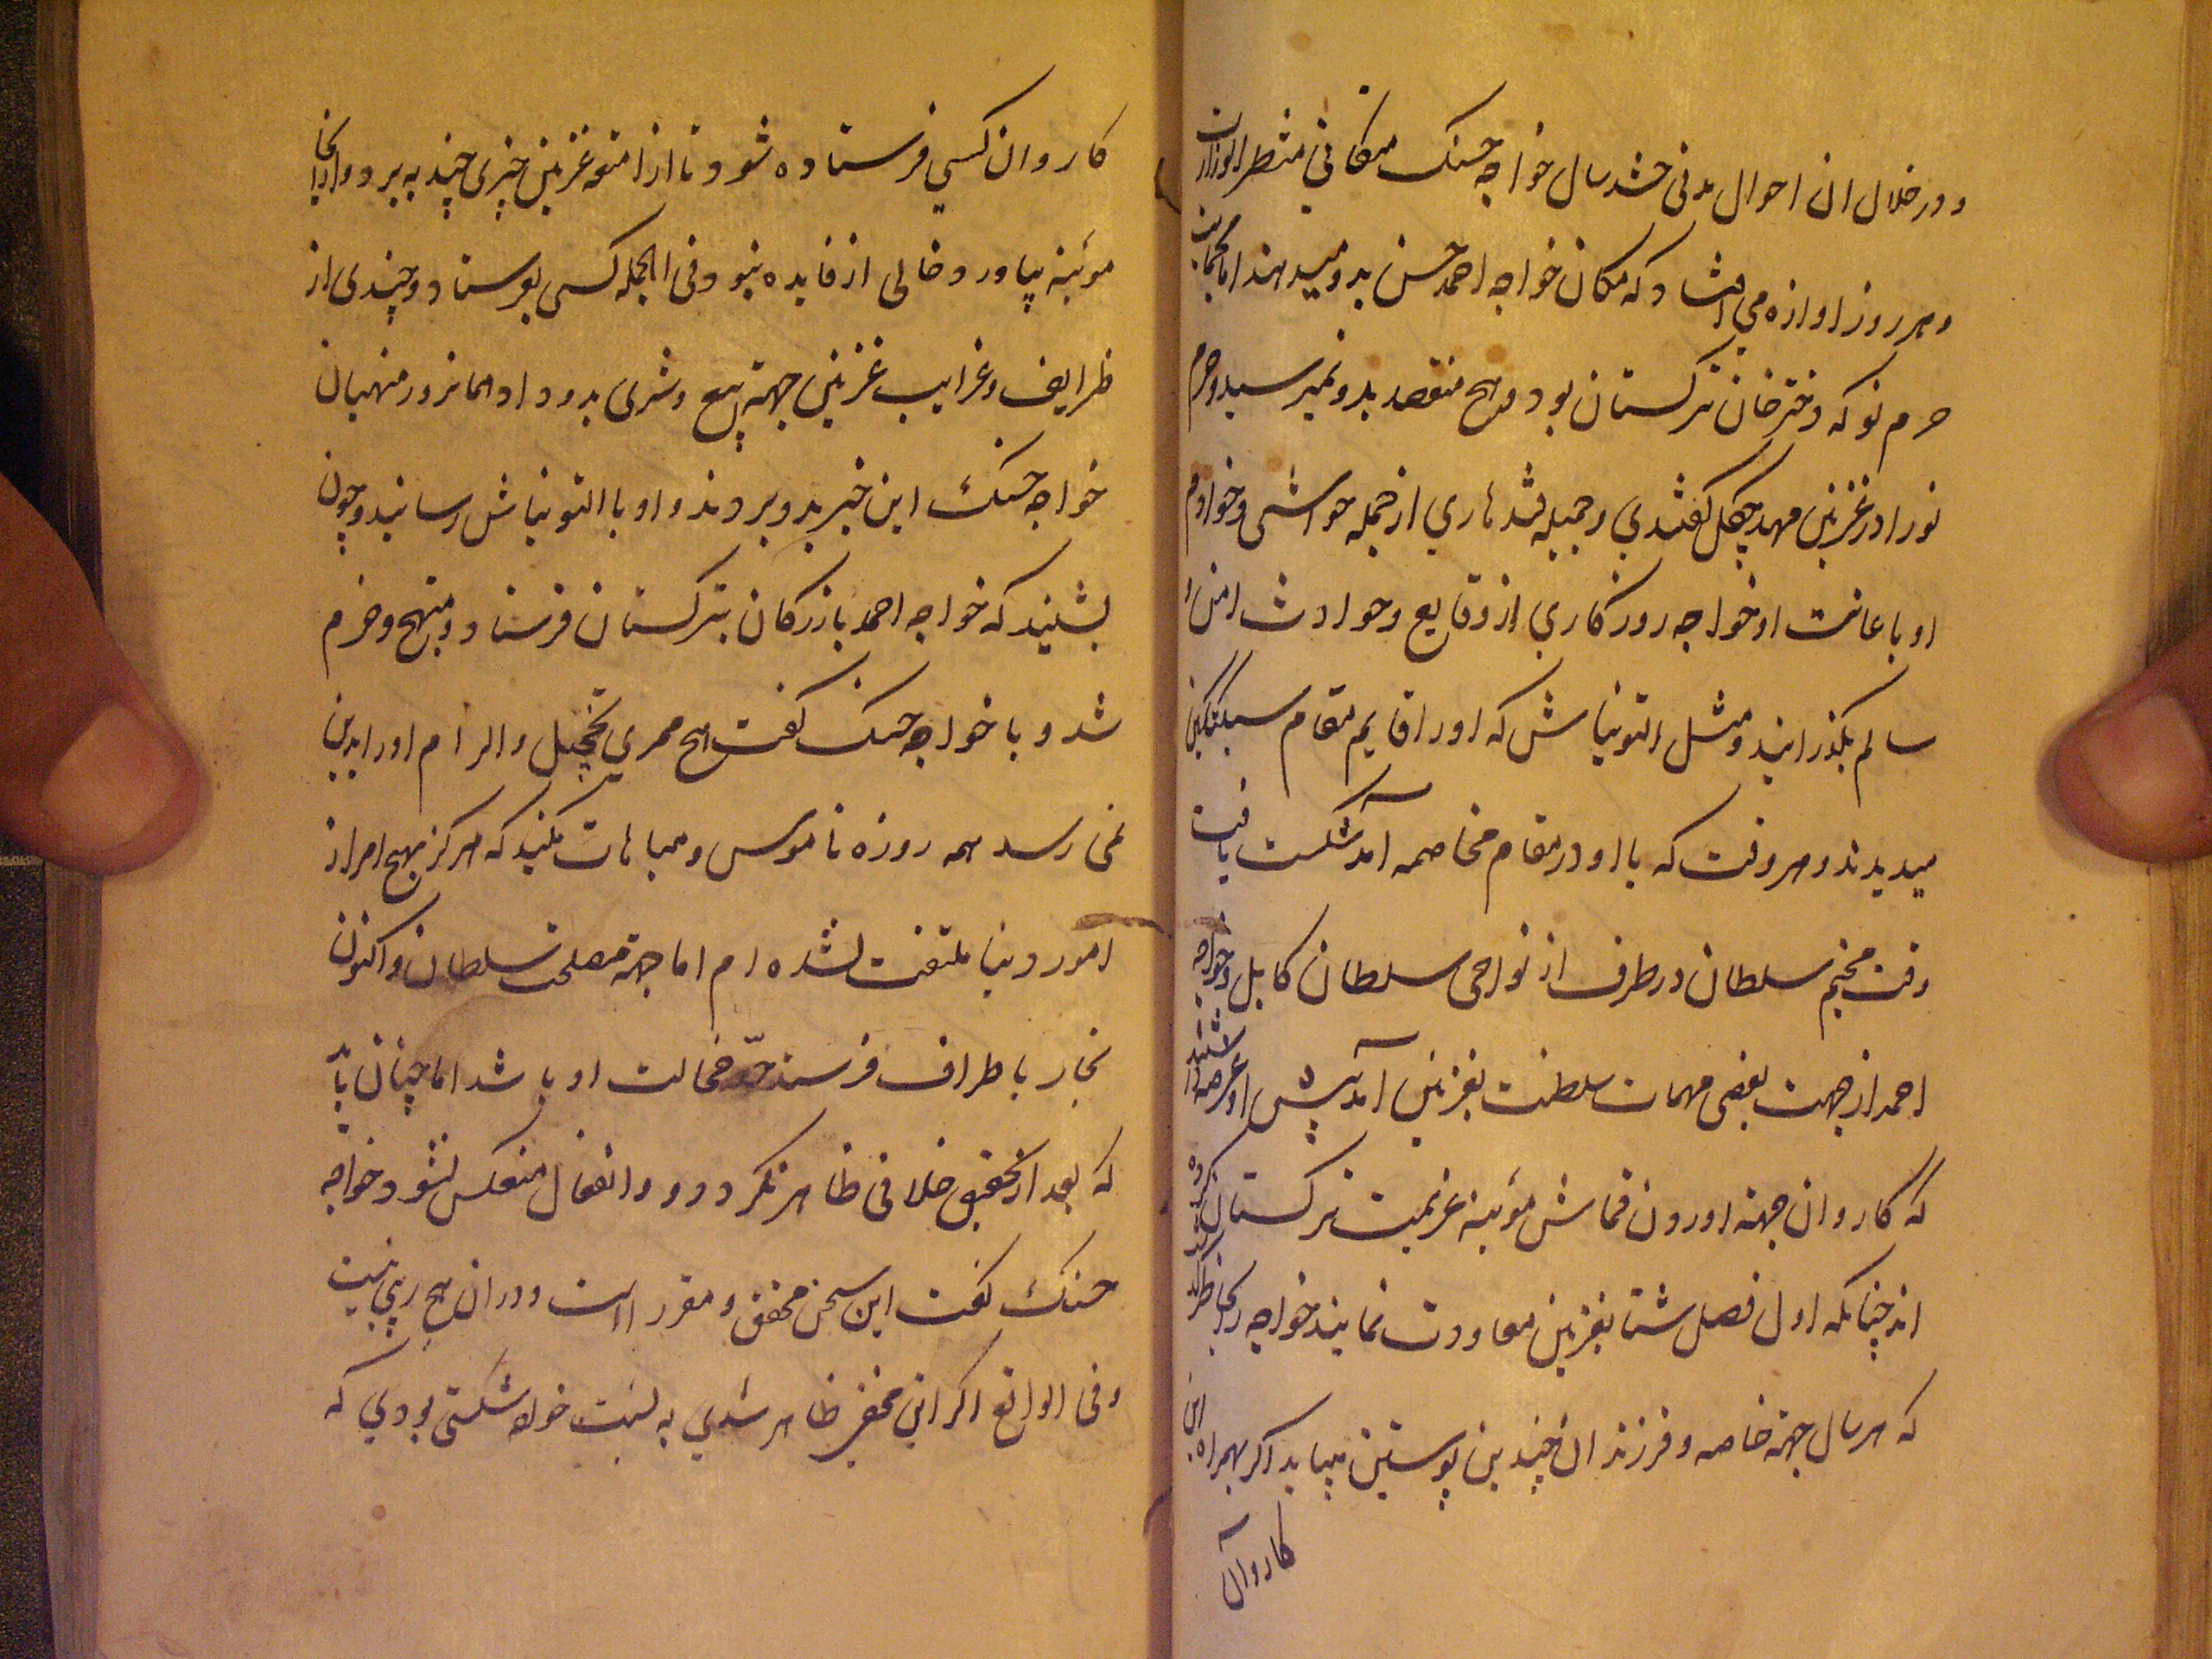 و در خلال ان احوال مدتی خشد سال خواجه حسنک میکانی منتظر الوزارت
و هر روز اوازه می افتاد که مکان خواجه احمد حسن بدو میدهند اما بحمایت
حرم نو که دختر خان ترکستان بود و هیچ منقصد بدو نمیرسید و حرم
نو را در غزنین مهد چکل گفتندی و جمیله قندهاری از جمله حواشی و خوادم
او باعانت او خواجه روزکاری از وقایع و حوادث امن و
سالم بگذرانید و مثل التونتاش که او را قایم مقام سبکتکین
میدیدند و هر وقت که با او در مقام مخاصمه آمد شکست یافت
وقت مخیم سلطان در طرف از نواحی سلطان کابل و خواجه
احمد از جهت بعضی مهمات سلطنت بغزنین آمد پیش او عرضه داشتند
که کاروان جهته اوردن قماش موئینه عزیمت ترکستان کرده
اند چنانکه اول فصل شتا بغزنین معاودت نمایند خواجه را بخاطر آمد
که هر سال جهته خاصه و فرزندان چندین پوستین میباید اکر بهمراه این
کاروان
کاروان کسی فرستاده شود تا از امتعه غزنین چیزی چند به برد و از انجا
موئینه بیاورد خالی از فایده نبود فی الجمله کسی بفرستاد و چندی از
ظرایف و غرایب غزنین جهته بیع و شری بدو داد همانروز منهیان
خواجه حسنک این خبر بدو بردند و او با التونتاش رسانید و چون
بشنید که خواجه احمد بازرکان بترکستان فرستاد و مبتهج و خرم
شد و با خواجه حسنک گفت هیچ ممری تخجیل و الزام او را بدین
نمی رسد همه روزه ناموس و مباهات میکند که هرکز بهیچ امر از
امور دنیا ملتفت نشده ام اما جهته مصلحت سلطان و اکنون
تجار باطراف فرستد حد خجالت او باشد اما چنان باید
که بعد از تحقیق خلافی ظاهر نکردد و انفعال منعکس نشود خواجه
حسنک گفت این سخن محقق و مقرر است و در ان هیچ ریبی نیست
و فی الواقع اکر این مخفی ظاهر شدی به نسبت خواجه شکستی بودی که